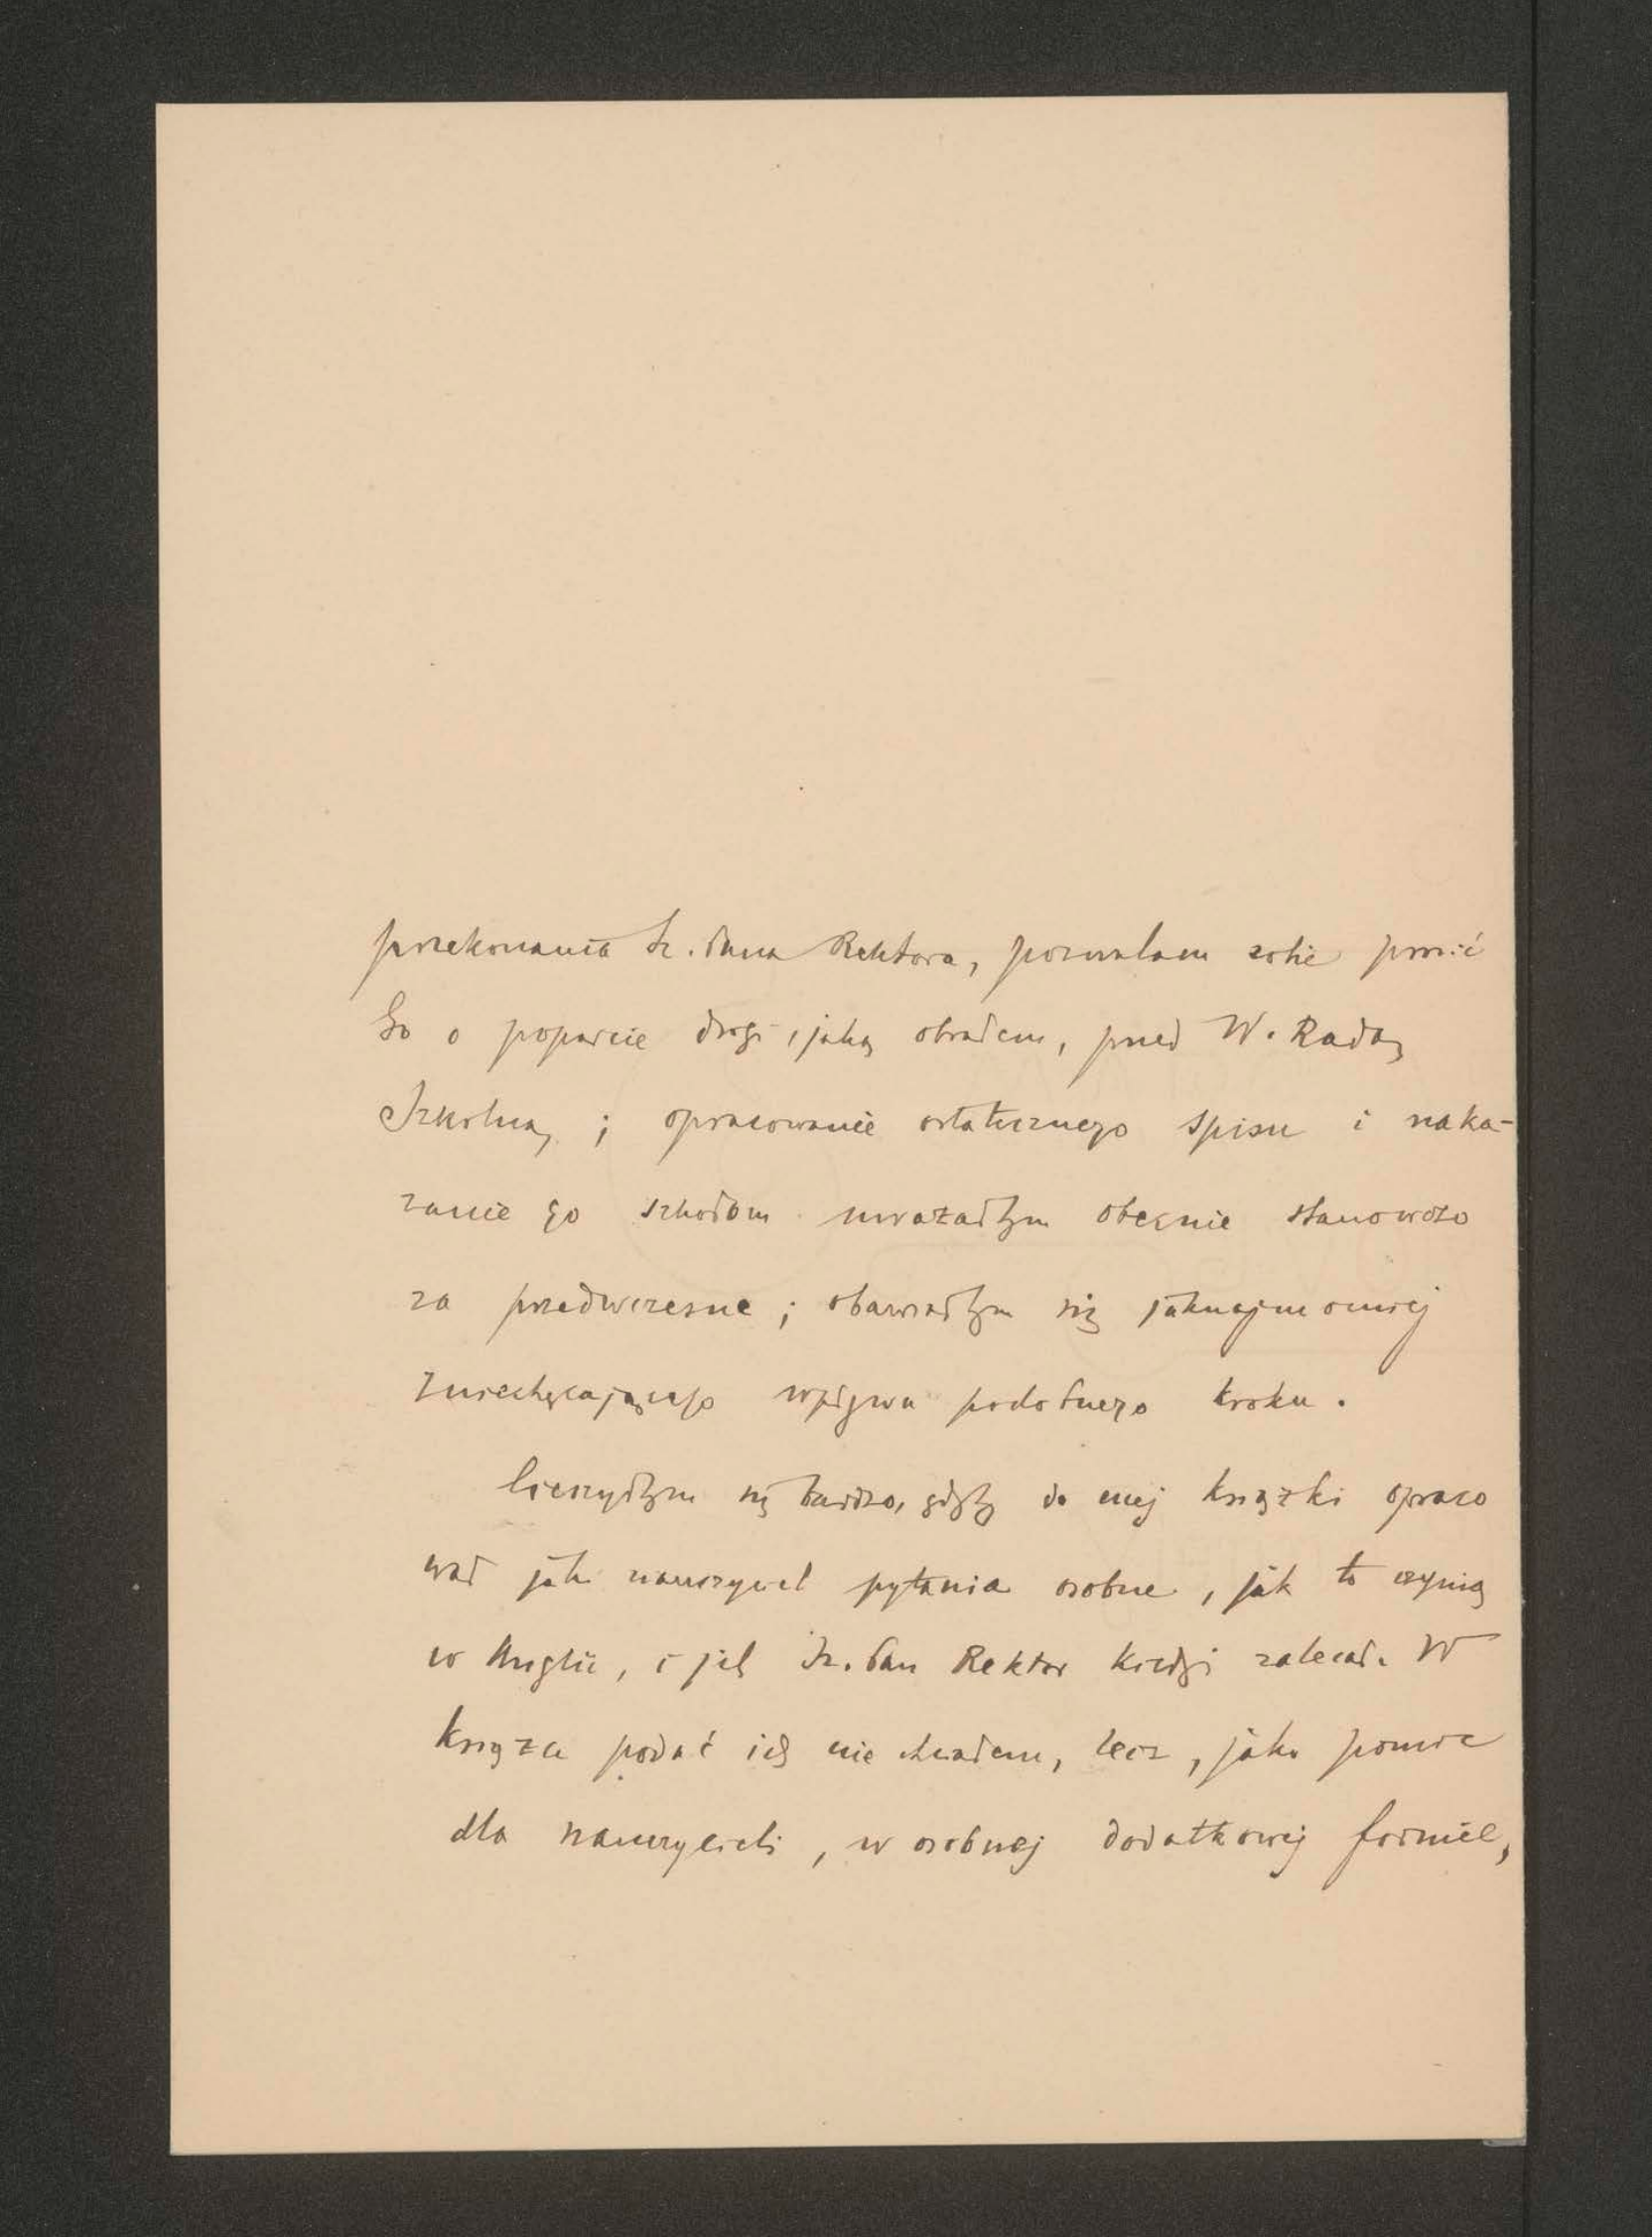 przekonania Sz. Pana Rektora, pozwalam sobie prosić
Go o poparcie drogi, jaką obrałem, przed W. Radą
Szkolną; opracowanie ostatecznego spisu i naka-
zanie go szkołom uważałbym obecnie stanowczo
za przedwczesne; obawiałbym się jaknajmocniej
zniechęcającego wpływu podobnego kroku.
Cieszyłbym się bardzo, gdyby do mej książki opraco
wał jaki nauczyciel pytania osobne, jak to czynią
w Anglii, i jak Sz. Pan Rektor kiedyś zalecał. W
książce podać ich nie chciałem, lecz, jako pomoc
dla nauczycieli, w osobnej dodatkowej formie,